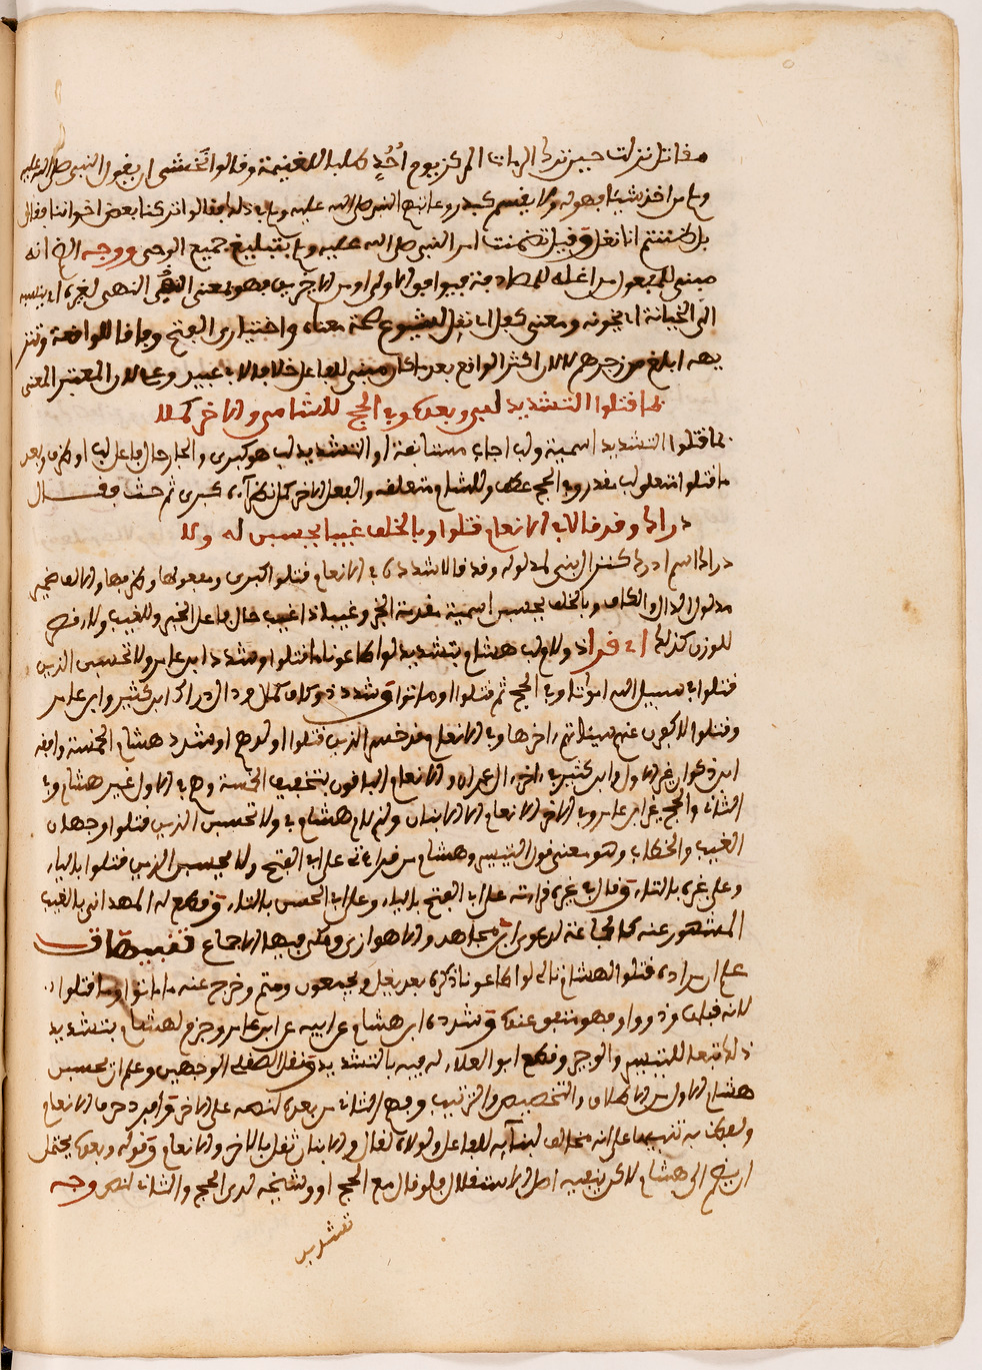 مقاتل نزلت حين ترك الرماة المركز يوم أُحُدٍ طلبا للغنيمة وقالوا نخشى ان يقول النبي صلى الله عليه
وسلم من اخذ شيئا فهو له ولا يقسم كبدر وعاتبهم النبي صلى الله عليه وسلم على ذلك فقالوا تركنا بعض اخواننا فقال
بل ظننتم انا نغل وقيل تضمنت امر النبي صلى الله عليه وسلم بتبليغ جميع الوحي ووجه الضم انه
مبني للمفعول من اغله للمصادفة فيوافق الاولى او من الاخرين فهو بمعنى النهي لغيره اي ينسب
الى الخيانة اي يخونه ومعنى يغل اي واختياري الفتح وفاقا للواقعة
يهه ابلغ من زجرهم لان اكثر الواقع بعد ما كان مبني للفاعل خلافا لابي عبيد وعلى لان المعتبر المعنى
بما قتلوا التشديد لبى وبعده وفي الحج للشامي والآخر كملا
بما قتلوا التشديد اسمية ولبى اجاب مستانفة او التشديد لبى هو كبرى والجار حال فاعل لبى او ظرف وبعد
ما قتلوا متعلق لبى مقدر وفي الحج عطف وللشام متعلقه والفعل الاخر كمل نظرا كبرى ثم حث فقال
دراك وقد قالا في الانعام قتلوا وبالخلف غيبا يحسبن له ولا
دراك اسم ادرك كنزال بني لمدلوله وقد قالا شددا في الانعام قتلوا كبرى ومفعولها وظرفها والالف ضمير
مدلول الدال والكاف وبالخلف يحسبن اسمية مقدمة الخبر وغيبا ذا غيب حال فاعل الخبر وللغيب ولا رفصر
للوزن كذلك اي قرا ذو لام لبى هشام بتشديد لو اطاعونا ما قتلوا وشدد ابن عامر ولا تحسبن الذين
قتلوا في سبيل الله امواتا وفي الحج ثم قتلوا او ماتوا وشدد ذو كاف كملا ودال دراك ابن كثير وابن عامر
وقتلوا لاكفرن عنهم سيئاتهم اخرها وفي الانعام قد خسر الذين قتلوا اولادهم او شدد هشام الخمسة وافقه
ابن ذكوان غير الاول وابن كثير في اخر ال عمران والانعام الباقون بتخفيف الخمسة وهم في الاول غير هشام وفي
الثاني والحج غير ابن عامر وفي الاخر الانعام الا الابنان ولذي لام هشام في ولا تحسبن الذين قتلوا وجهان
الغيب والخطاب وهو معنى قول التيسير وهشام من قراتي على ابي الفتح ولا يحسبن الذين قتلوا بالياء
وعلى غيره بالتاء وقال في غيره قراته على ابي الفتح بالياء وعلى ابي الحسن بالتاء وقطع له المهداني بالغيب
المشهور عنه كالجماعة لدعوى ابن مجاهد والاهوازي ومكي فيها الاجماع تنبيهات
علم ان مراده قتلوا الهشام تالي لو اطاعونا ذكره بعد يغل ويجمعون ومتم وخرج عنه ما ماتوا وما قتلوا
لانه قبلت وذو واو فهو متفق عنه وشدده ابن هشام عن ابيه عن ابن عامر وجزم لهشام بتشديد
ذلك تبعا للتيسير والوجيز وقطع ابو العلاء له فيه بالتشديد ونقل الصقلي الوجهين وعلم ان يحسبن
هشام الاول من الاطلاق والتخصيص والترتيب وفهم الثاني من بعده لنصه على الاخر وافرد حرف الانعام
ولفظ به تنبيها على انه مخالف لبنائه للفاعل ولولاه لقال والابنان ثقل بالاخر والانعام وقوله وبعده يحتمل
ان يضم الى هشام لاكن ينفيه اصل الاستقلال فلو قال مع الحج او وشيخه لدى الحج والثاني لنص وجه
تشديد